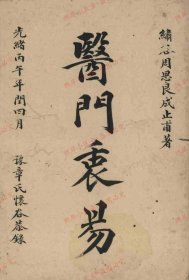 繡谷周思良成止甫著
醫門裏易
光緒丙午年閏四月
諒章氏懷谷恭錄